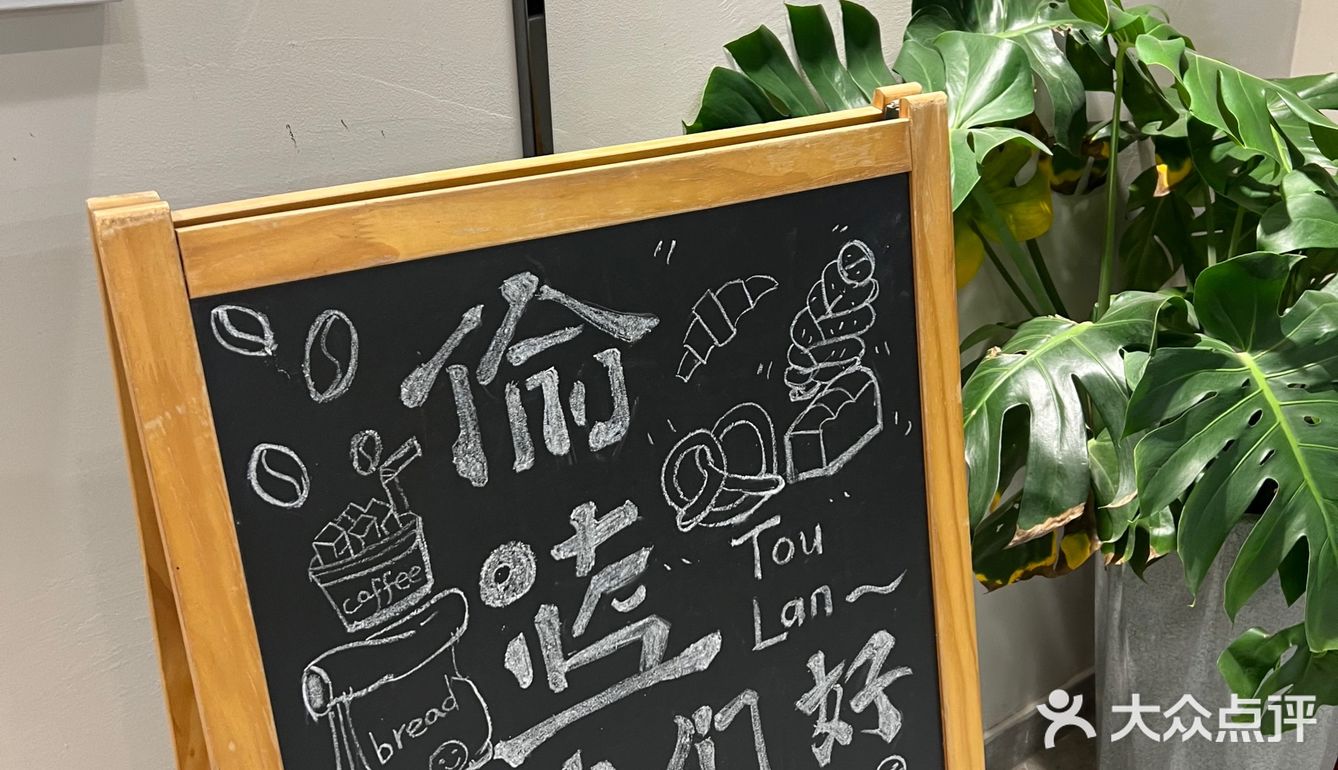 偷
Tou
Lan~
coffee
bread
们好
大众点评